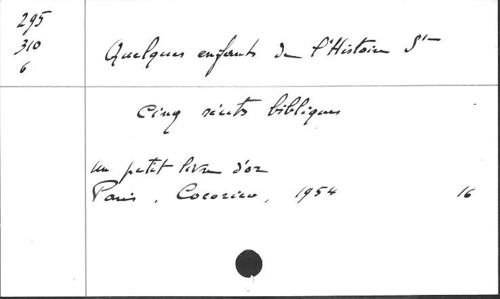 295
310
6
Quelques enfants de l'Histoire Ste
Cinq récits bibliques
un petit livre d'or
Paris, Cocorico, 1954 16